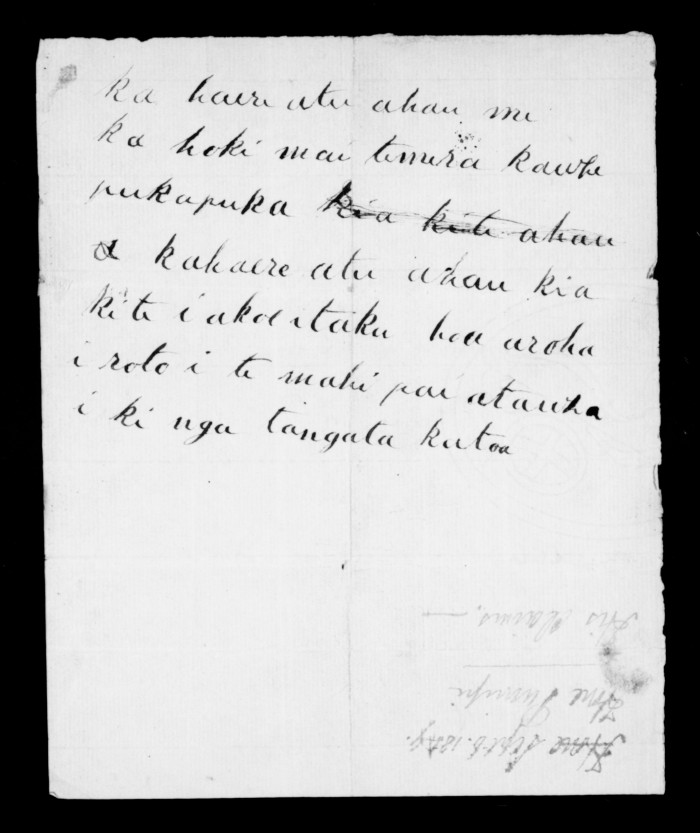 ka haere atu ahau me
ka hoki mai temera kawhe
pukapuka kia kite ahau
kahaere atu ahau kia
kite i akoe itaku hoa aroha
i roto i te mahi pai atauha
i ki nga tangata katoa
his Claims.
Hone
Hone Sept 5. 18